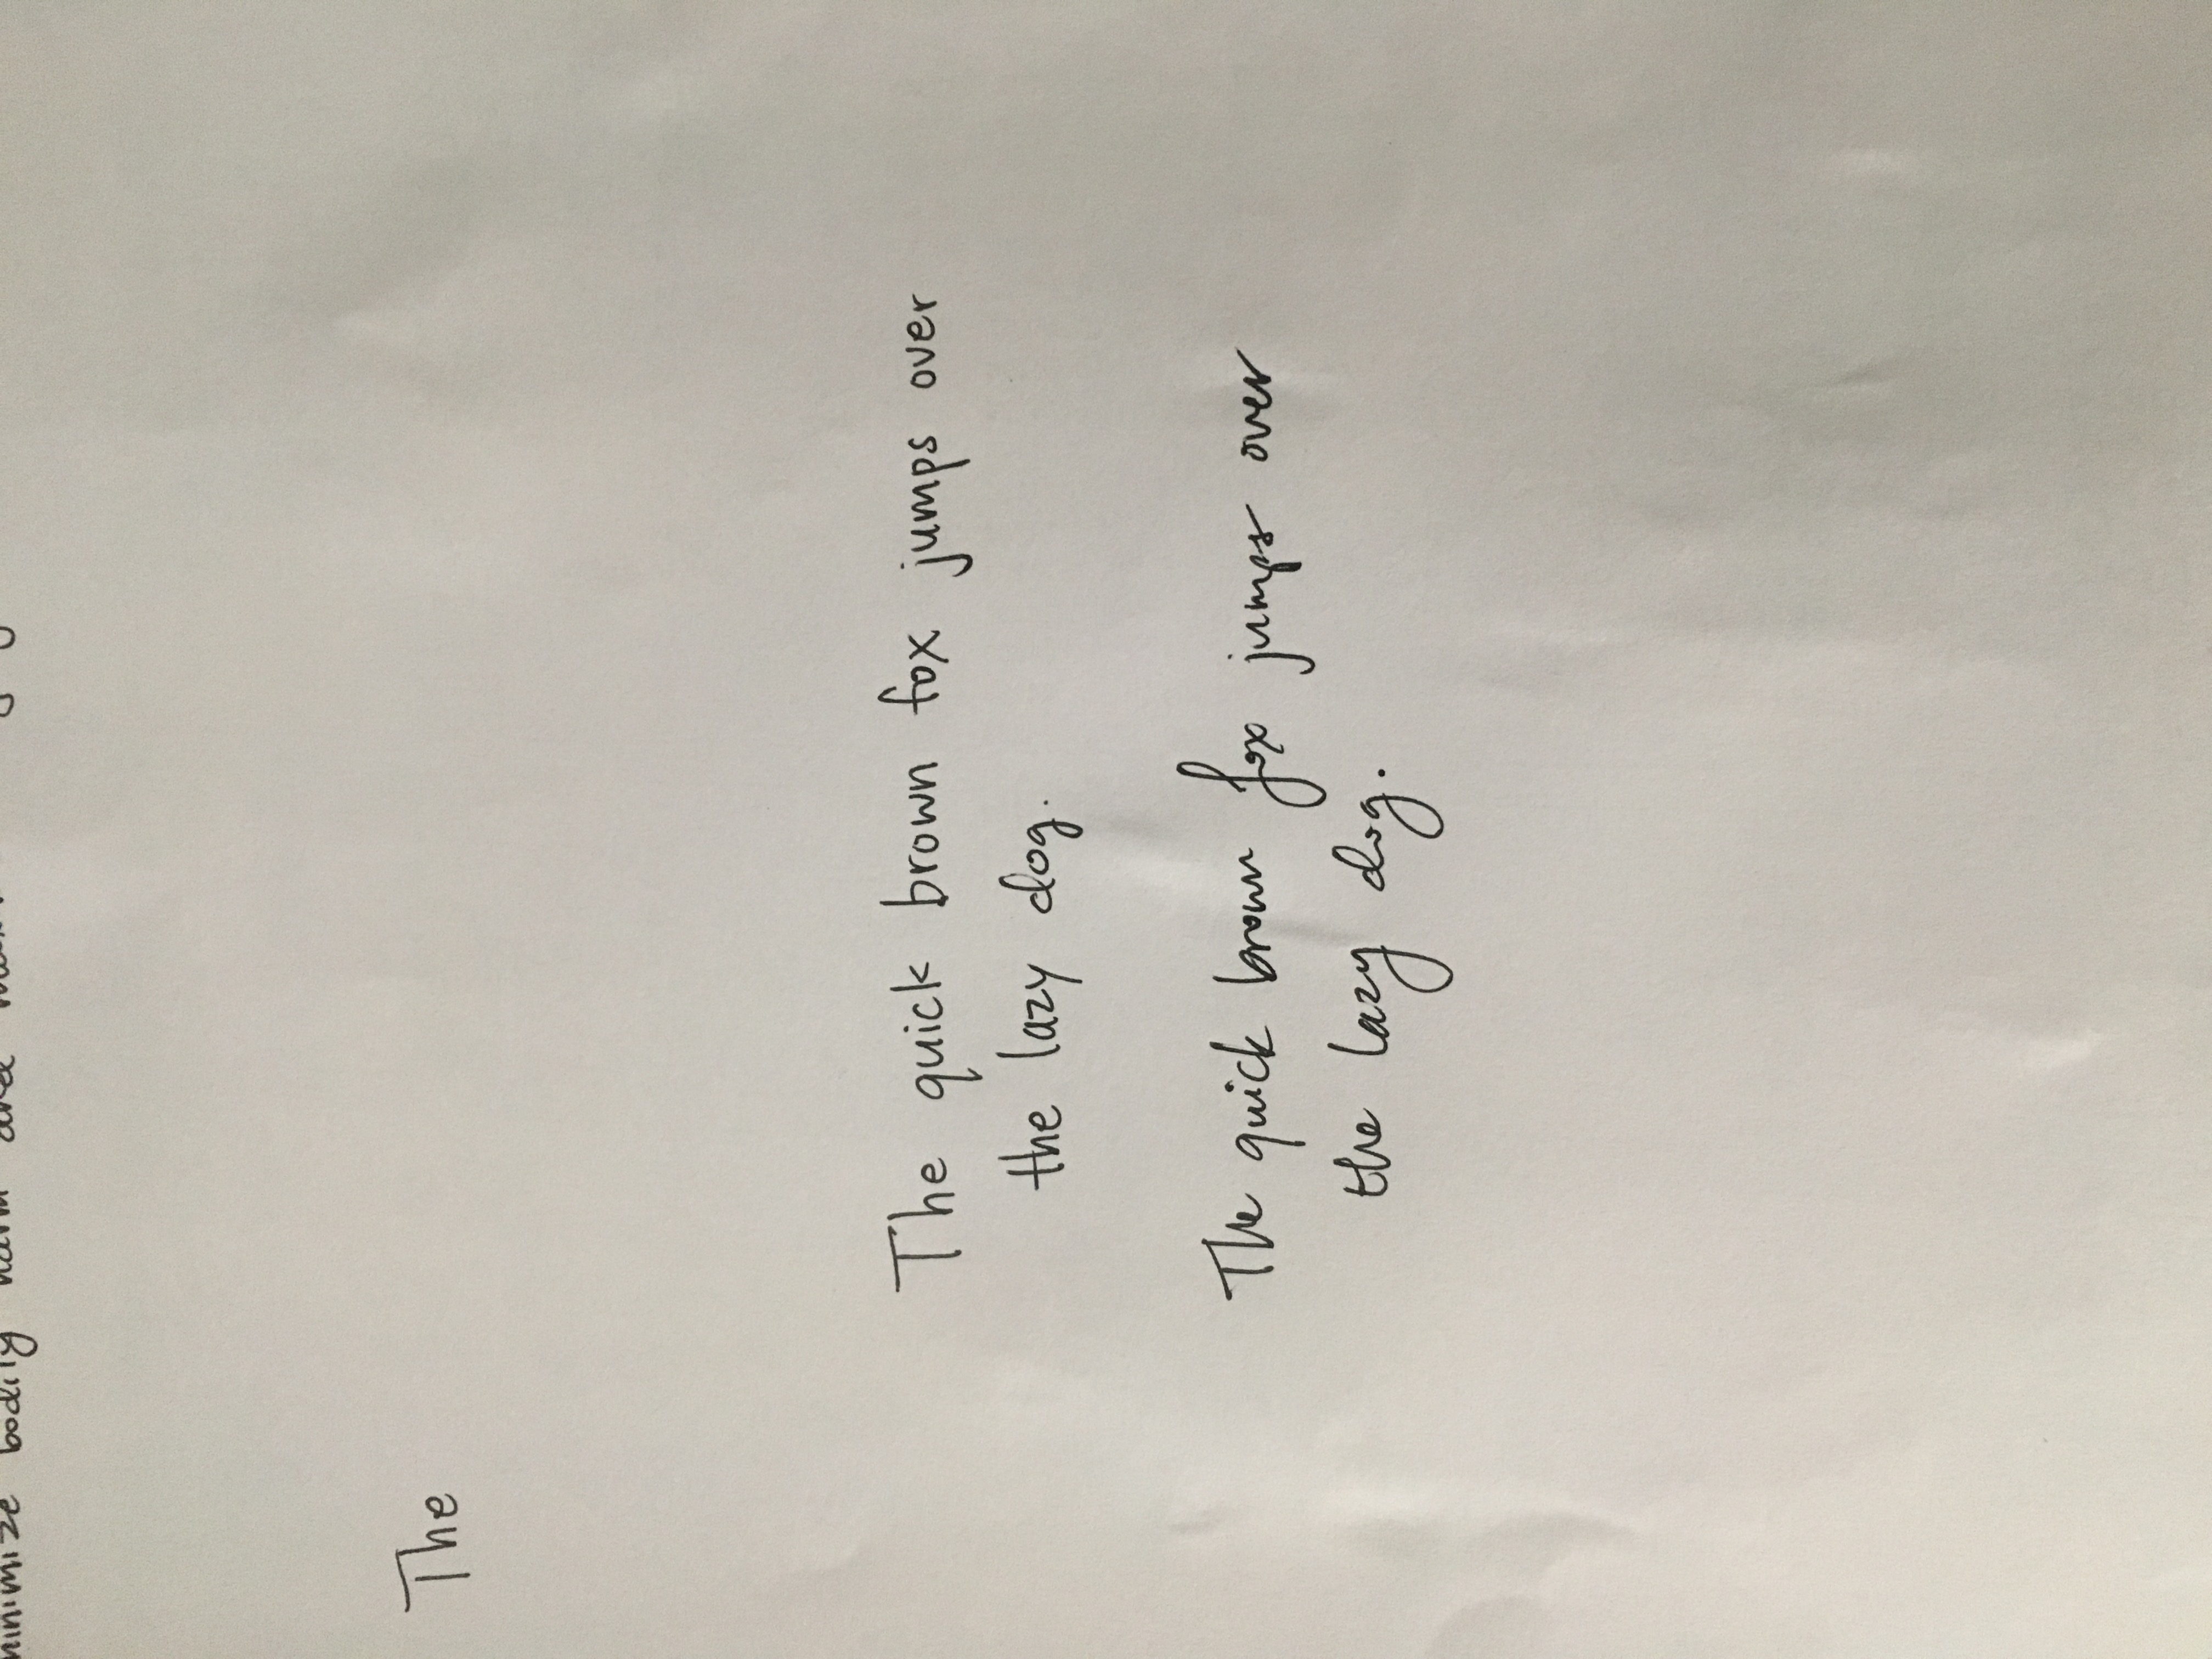 minimize bodily harm and
The
The quick brown fox jumps over
the lazy dog.
The quick brown fox jumps over
the lazy dog.